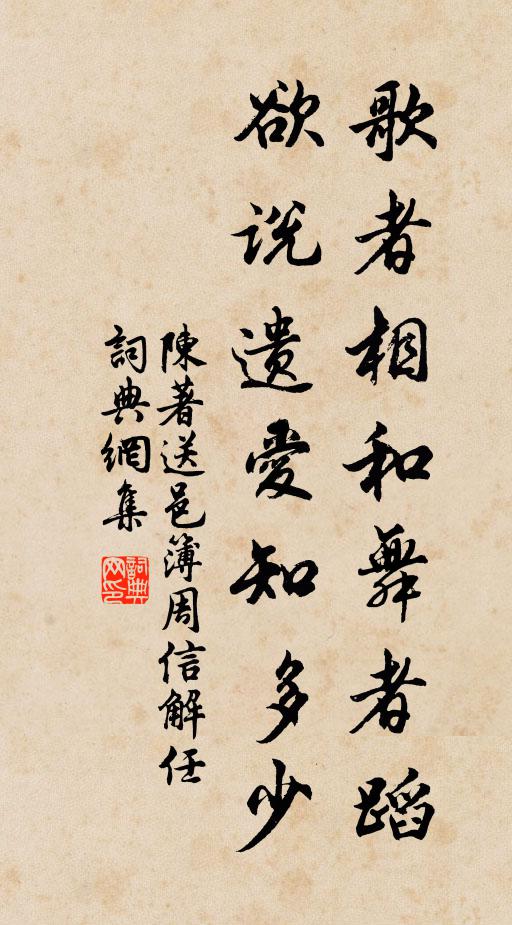 歌者相和舞者蹈
欲説遗愛知多少
陳著送邑簿周信解任
詞典網集
詞典网印